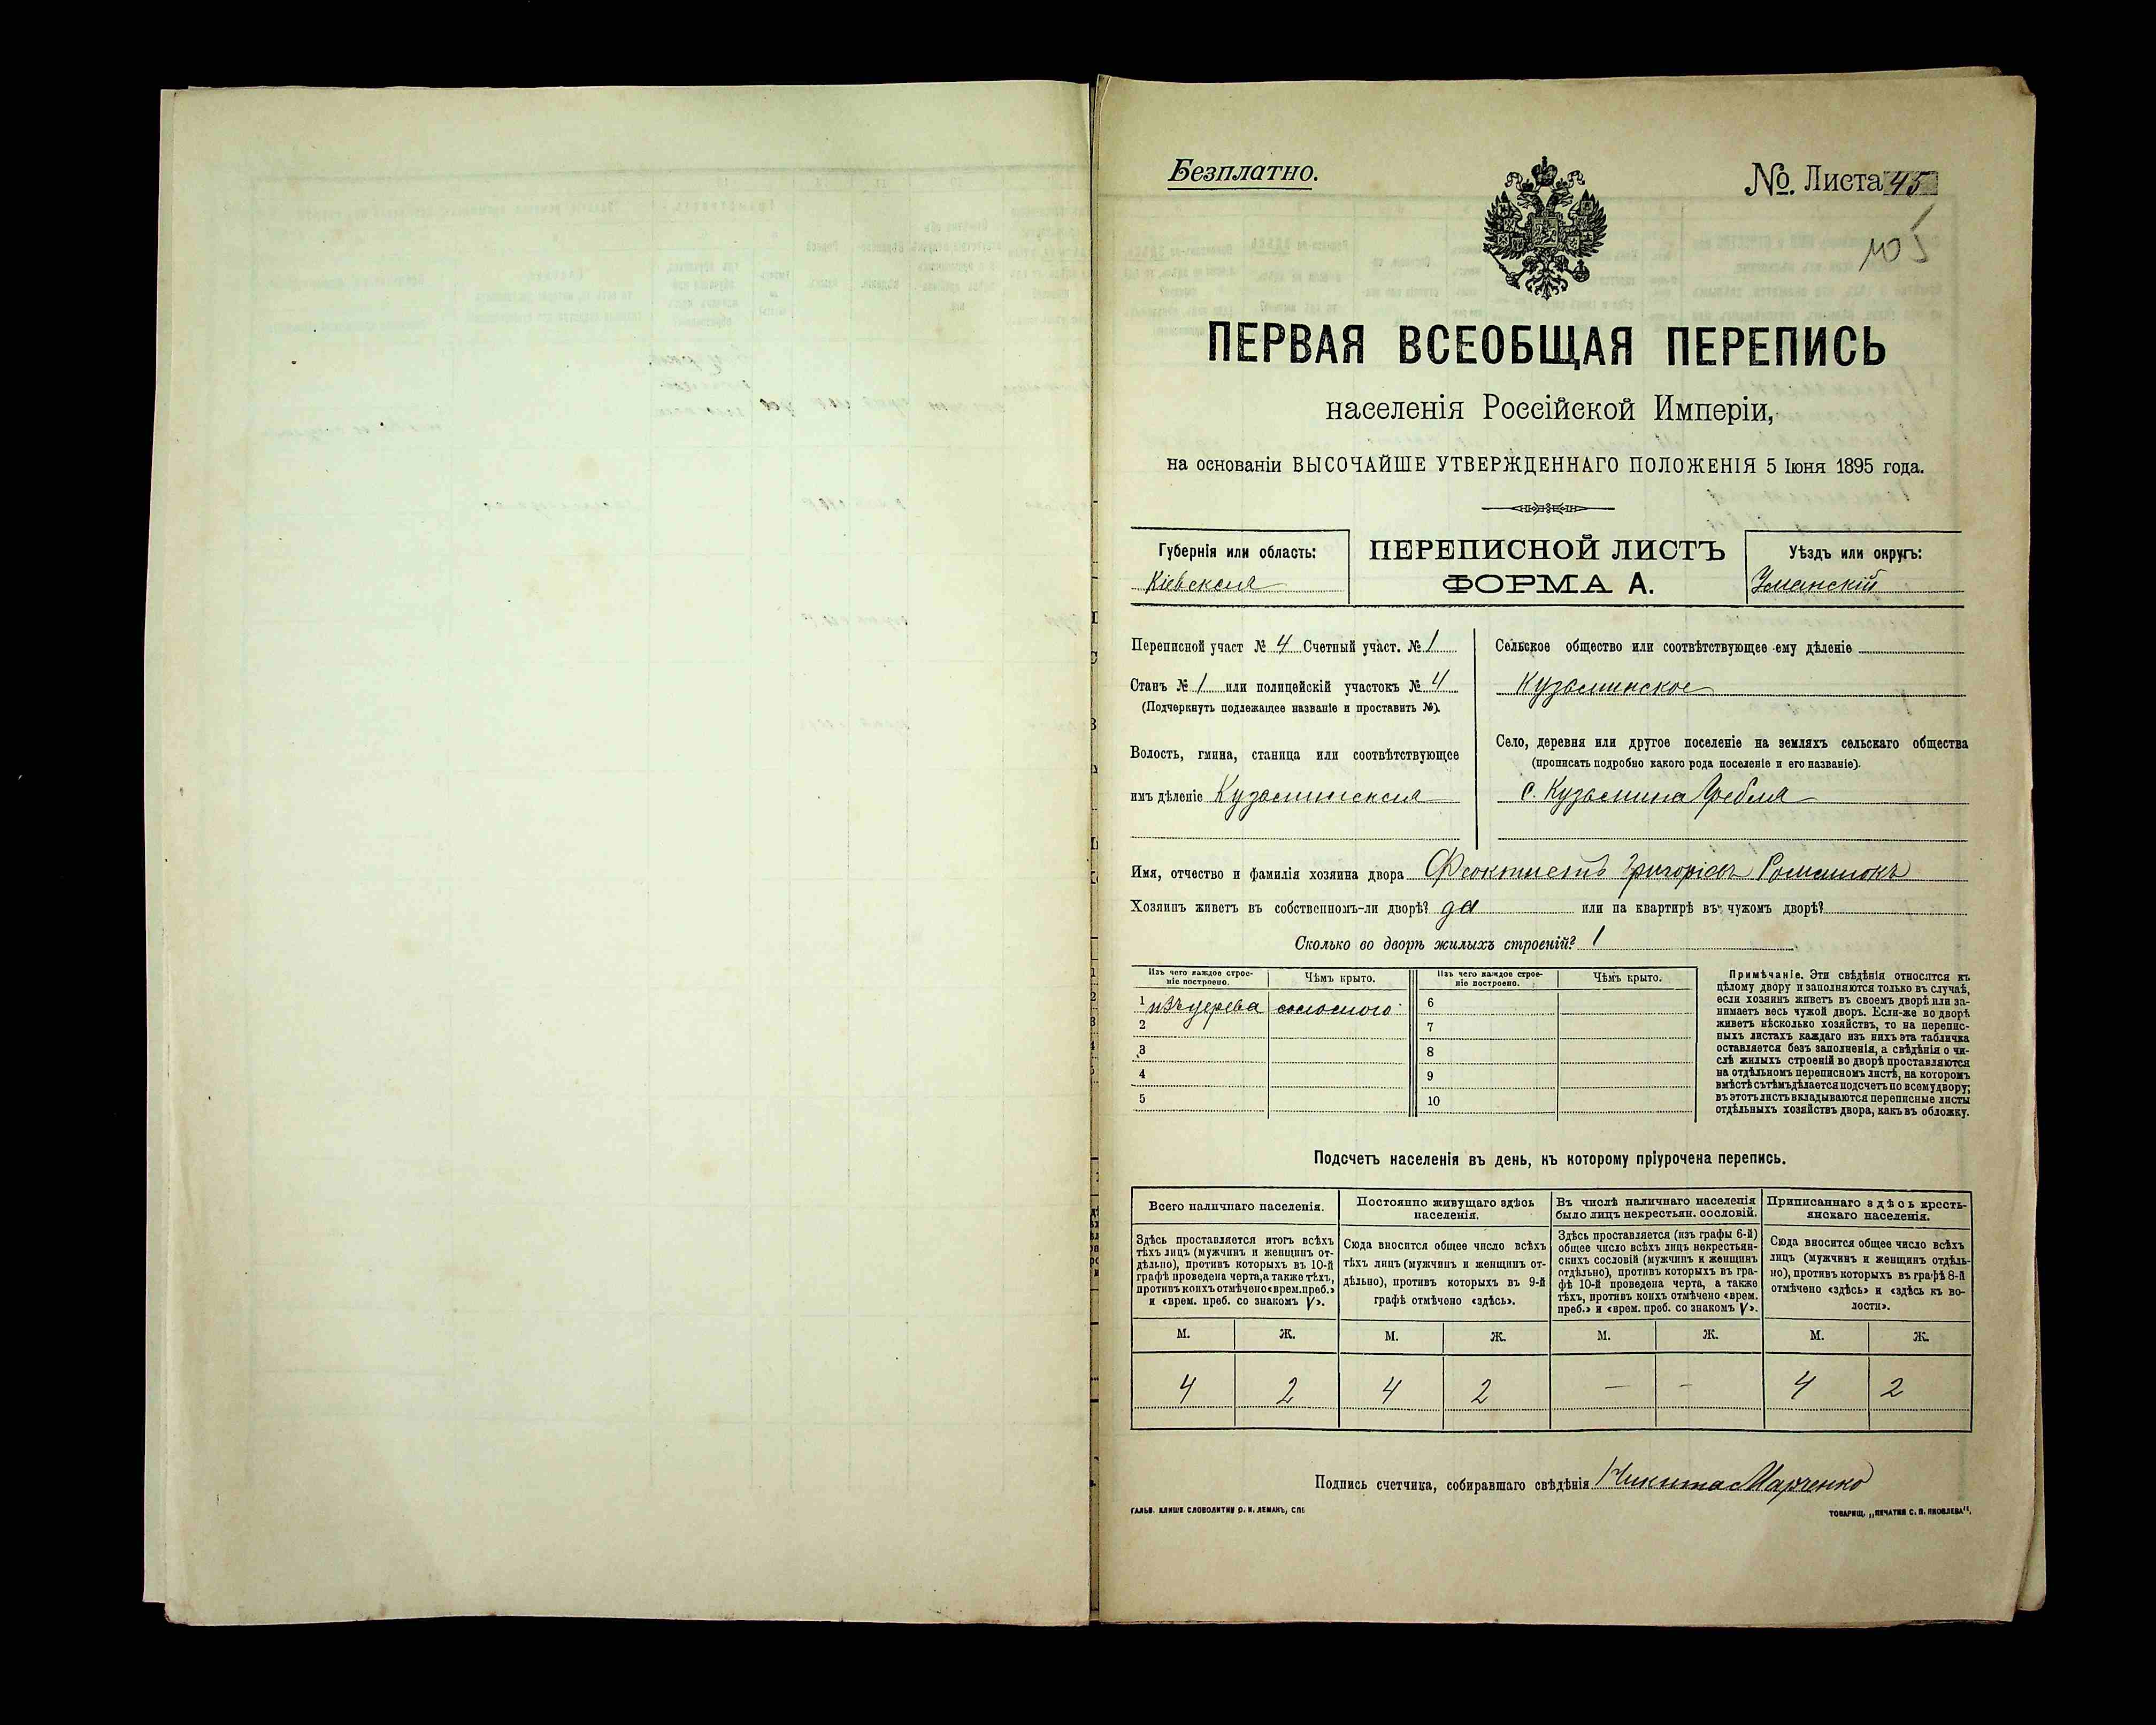 Безплатно.
№. Листа 45
105
ПЕРВАЯ ВСЕОБЩАЯ ПЕРЕПИСЬ
населенія Россійской Имперіи,
на основаніи ВЫСОЧАЙШЕ УТВЕРЖДЕННАГО ПОЛОЖЕНІЯ 5 Іюня 1895 года.
Губернія или область:
Кіевская
ПЕРЕПИСНОЙ ЛИСТЪ
ФОРМА А.
Уѣздъ или округъ:
Уманскій
Переписной участ № 4 Счетный участ. № 1
Станъ № 1 или полицейскій участокъ № 4
(Подчеркнуть подлежащее названіе и проставить №).
Волость, гмина, станица или соотвѣтствующее
имъ дѣленіе Кузьминская
Сельское общество или соотвѣтствующее ему дѣленіе
Кузьминское
Село, деревня или другое поселеніе на земляхъ сельскаго общества
(прописать подробно какого рода поселеніе и его названіе).
с. Кузьмина Гребля
Имя, отчество и фамилія хозяина двора Феоктистъ Григоріевъ Романюкъ
Хозяинъ живетъ въ собственномъ-ли дворѣ? да или на квартирѣ въ чужомъ дворѣ?
Сколько во дворѣ жилыхъ строеній? 1
Изъ чего каждое строе-
ніе построено.
Чѣмъ крыто.
Изъ чего каждое строе-
ніе построено.
Чѣмъ крыто.
1 изъ дерева соломого 6
2 7
3 8
4 9
5 10
Примѣчаніе. Эти свѣдѣнія относятся къ
цѣлому двору и заполняются только въ случаѣ,
если хозяинъ живетъ въ своемъ дворѣ или за-
нимаетъ весь чужой дворъ. Если-же во дворѣ
живетъ нѣсколько хозяйствъ, то на перепис-
ныхъ листахъ каждаго изъ нихъ эта табличка
оставляется безъ заполненія, а свѣдѣнія о чи-
слѣ жилыхъ строеній во дворѣ проставляются
на отдѣльномъ переписномъ листѣ, на которомъ
вмѣстѣ съ тѣмъ дѣлается подсчетъ по всему двору;
въ этотъ листъ вкладываются переписные листы
отдѣльныхъ хозяйствъ двора, какъ въ обложку.
Подсчетъ населенія въ день, къ которому пріурочена перепись.
Всего наличнаго населенія.
Здѣсь проставляется итогъ всѣхъ
тѣхъ лицъ (мужчинъ и женщинъ от-
дѣльно), противъ которыхъ въ 10-й
графѣ проведена черта, а также тѣхъ,
противъ коихъ отмѣчено «врем. преб.»
и «врем. преб. со знакомъ V».
Постоянно живущаго здѣсь
населенія.
Сюда вносится общее число всѣхъ
тѣхъ лицъ (мужчинъ и женщинъ от-
дѣльно), противъ которыхъ въ 9-й
графѣ отмѣчено «здѣсь».
Въ числѣ наличнаго населенія
было лицъ некрестьян. сословій.
Здѣсь проставляется (изъ графы 6-й)
общее число всѣхъ лицъ некрестьян-
скихъ сословій (мужчинъ и женщинъ
отдѣльно), противъ которыхъ въ гра-
фѣ 10-й проведена черта, а также
тѣхъ, противъ коихъ отмѣчено «врем.
преб.» и «врем. преб. со знакомъ V».
Приписаннаго здѣсь кресть-
янскаго населенія.
Сюда вносится общее число всѣхъ
лицъ (мужчинъ и женщинъ отдѣль-
но), противъ которыхъ въ графѣ 8-й
отмѣчено «здѣсь» и «здѣсь къ во-
лости».
М. Ж. М. Ж. М. Ж. М. Ж.
4 2 4 2 — — 4 2
Подпись счетчика, собиравшаго свѣдѣнія Никита Марченко
ГАЛЬВ. КЛИШЕ СЛОВОЛИТНИ О. И. ЛЕМАНЪ, СПБ
ТОВАРИЩ. „ПЕЧАТНЯ С. П. ЯКОВЛЕВА".